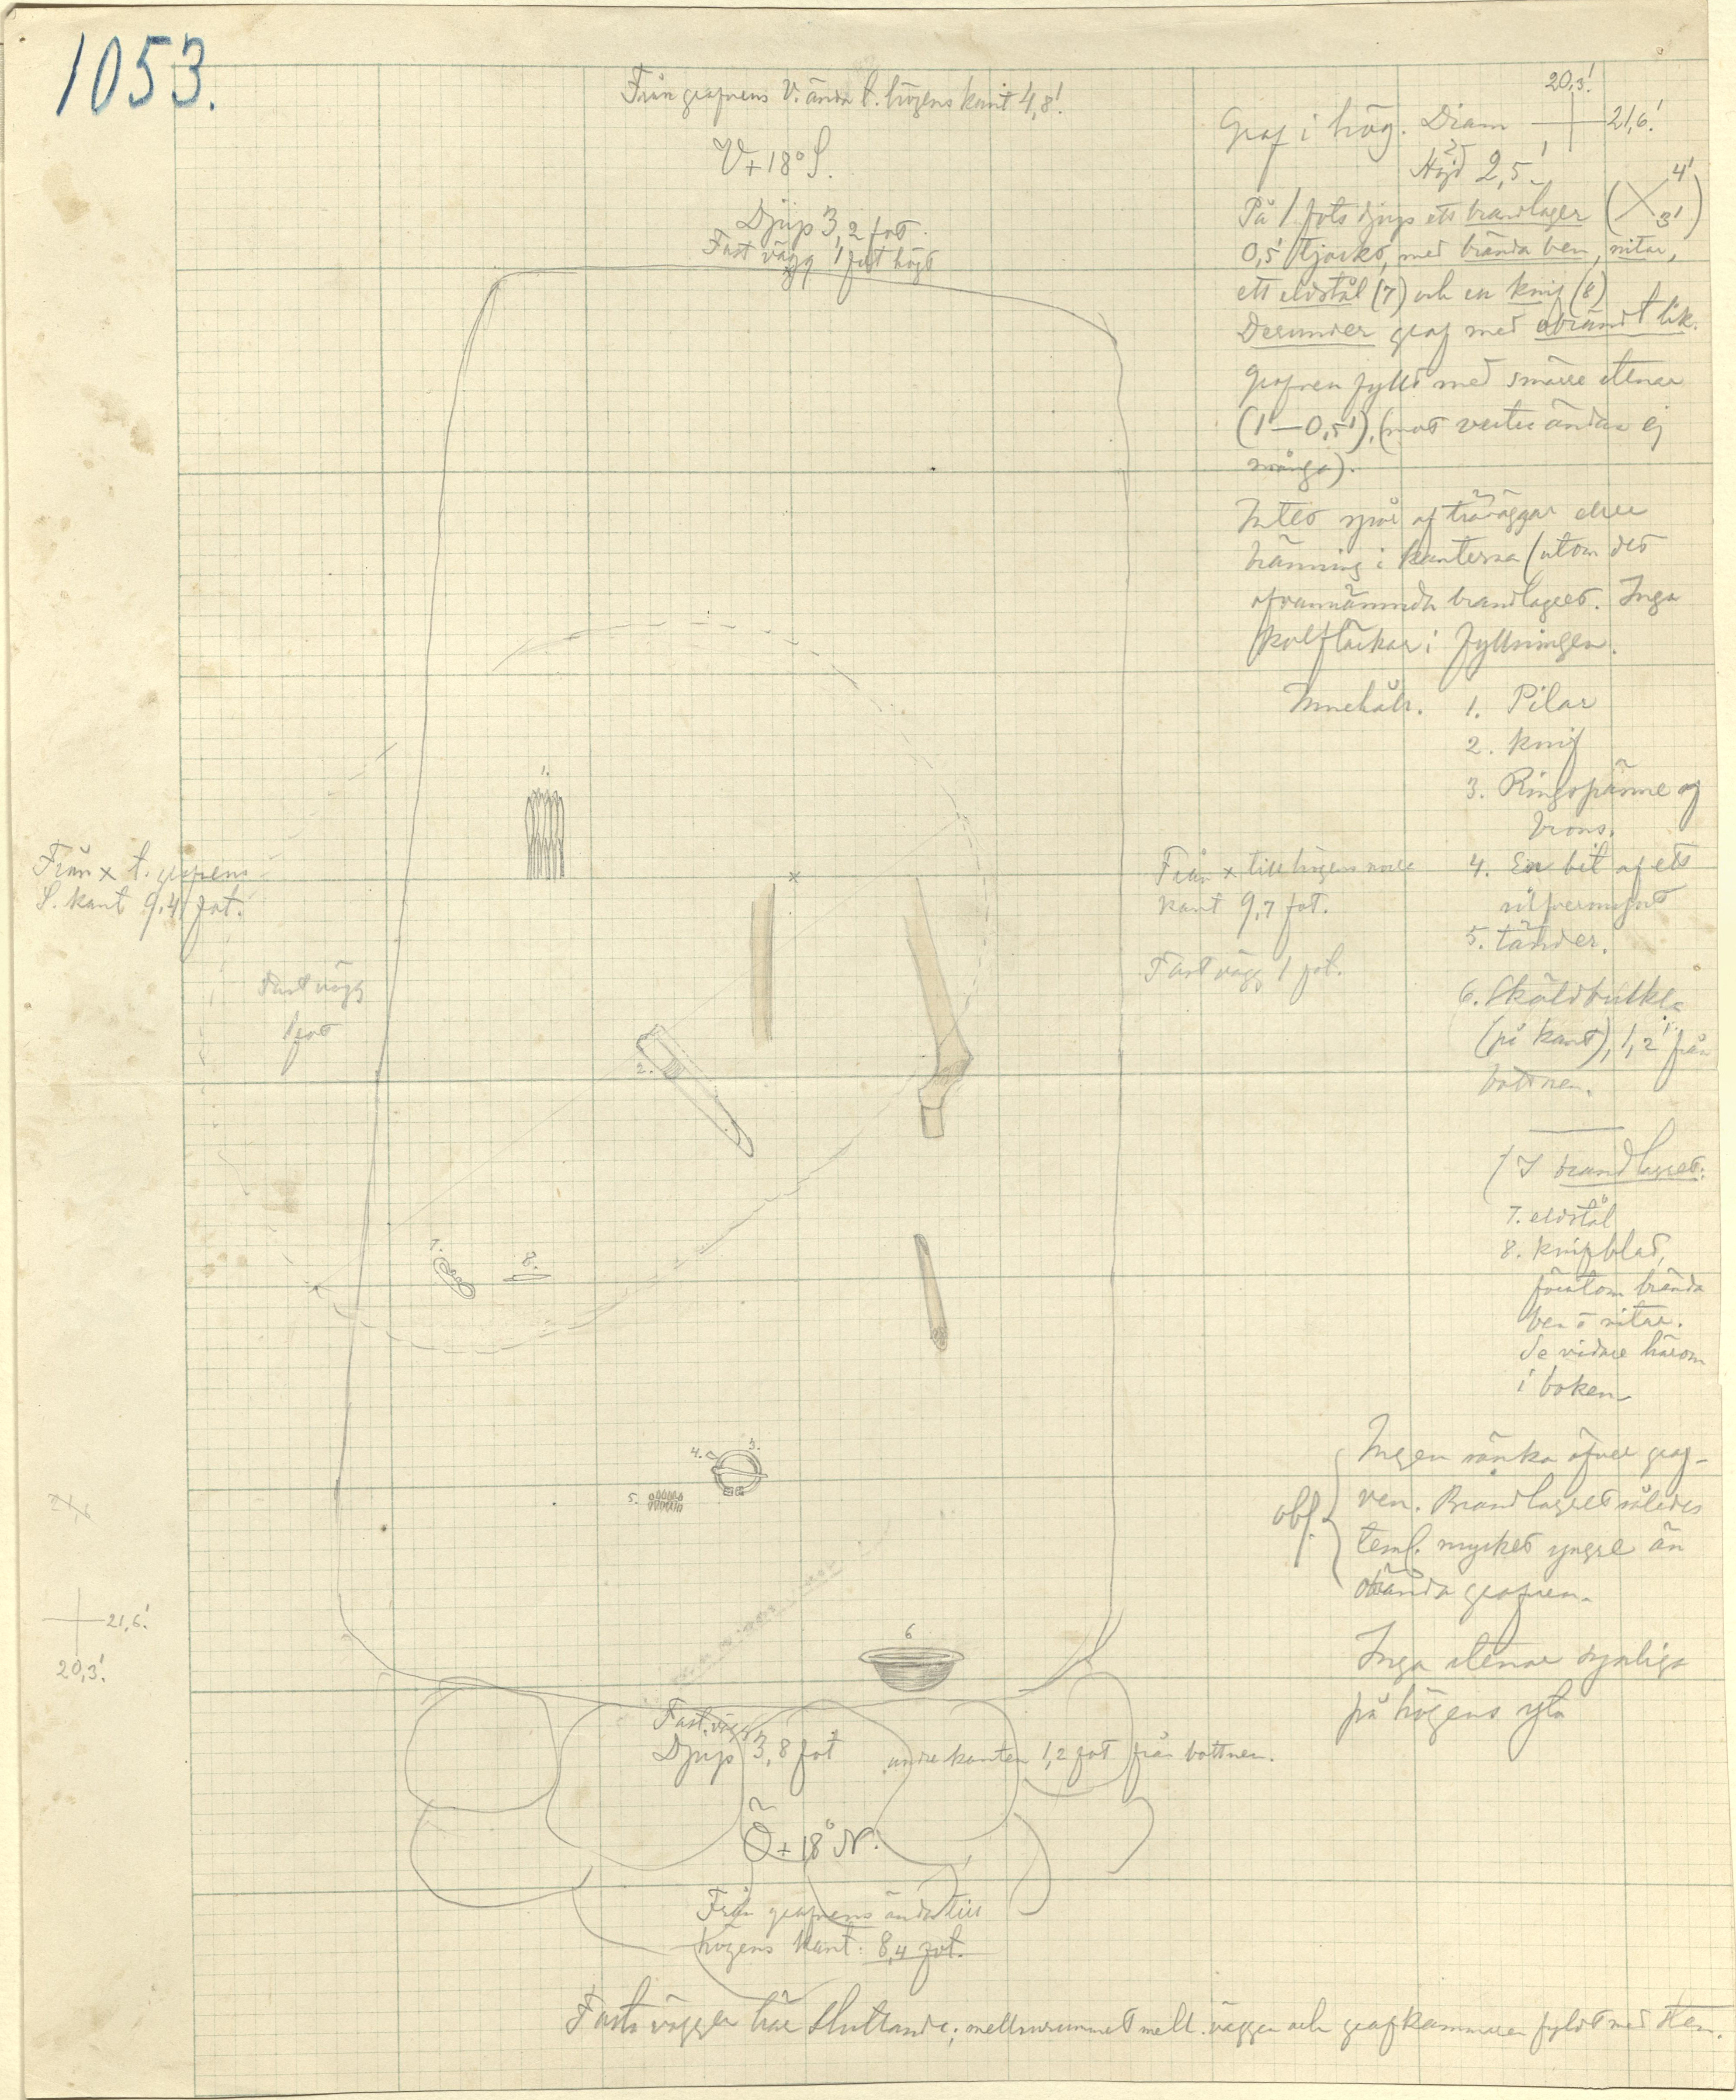 1053.
Från grafvens V. ända t. högens kant 4,8'.
V+18° S.
Djup 3,2 fot.
Fast vägg 1 fot högt
20,3'.
Graf i hög. Diam 21,6'.
Höjd 2,5'.
På 1 fots djup ett brandlager (4' 3')
0,5' tjockt, med brända ben, nitar,
ett eldstål (7) och en knif (8)
Derunder graf med obrändt lik.
Grafven fylld med smärre stenar
(1'—0,5'), (mot vestra ändan ej
många).
Intet spår af träväggar eller
bränning i kanterna (utom det
ofvannämnda brandlagret. Inga
kolfläckar i fyllningen.
Innehåll. 1. Pilar
2. knif
3. Ringspänne af
brons.
4. En bit af ett
silfvermynt
5. tänder.
6. Sköldbuckla
(på kant), 1,2' från
bottnen.
I brandlagret:
7. eldstål
8. knifblad,
förutom brända
ben o nitar.
Se vidare härom
i boken
obs. Ingen sänka öfver graf-
ven. Brandlagret således
teml. mycket yngre än
obrända grafven.
Inga stenar synliga
på högens yta
1.
Från x t. grafvens
S. kant 9,4 fot.
x
Från x till högens norra
kant 9,7 fot.
Fast vägg 1 fot.
Fast vägg
1 fot
2.
7.
8.
4. 3.
5.
21,6'.
20,3'.
6
Fast vägg
Djup 3,8 fot
undre kanten 1,2 fot från bottnen.
Ö+18° N.
Från grafvens ända till
högens kant. 8,4 fot.
Fasta väggen här sluttande; mellanrummet mell. väggen och grafkammaren fyldt med sten.